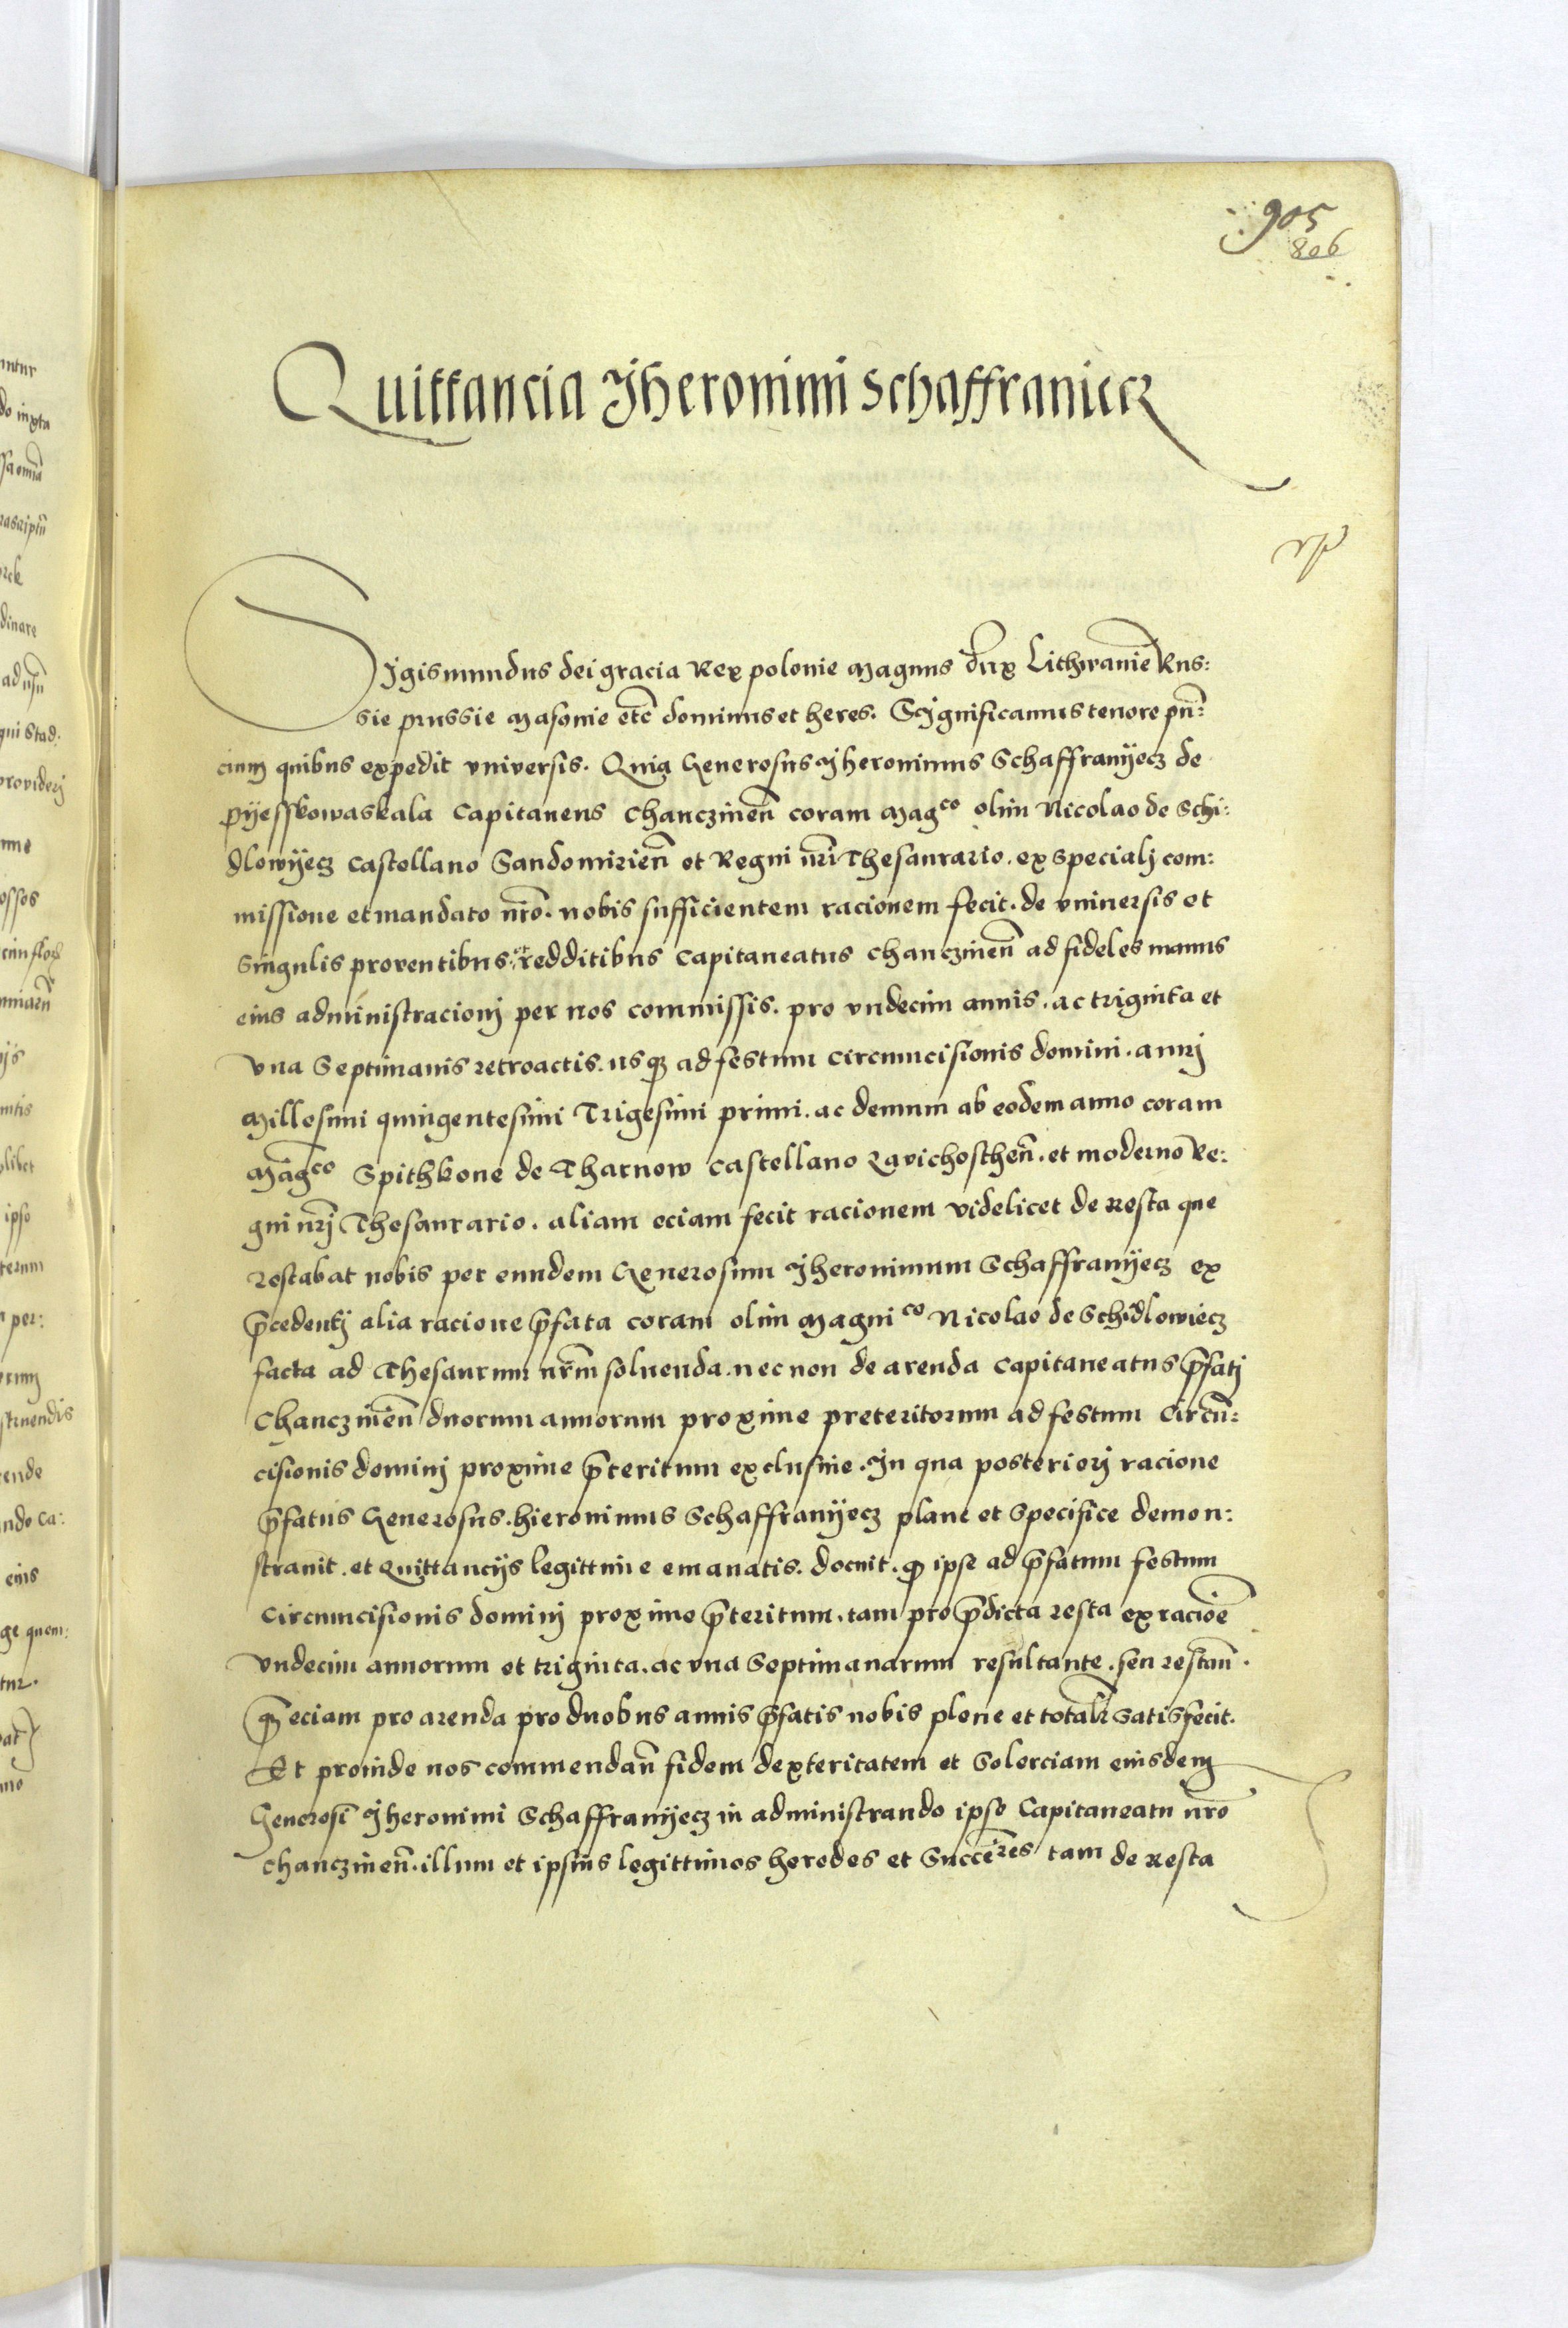 905
806
Quittancia Jheronimi Schaffraniecz
Sigismundus dei gracia Rex polonie Magnus dux Lithwanie Rus:
sie prussie Masovie etc̃ dominus et heres. Significamus tenore pñ:
cium quibus expedit vniversis. Quia Generosus Jheronimus Schaffranÿecz de
Pÿesskowaskala Capitaneus Chanczineñ coram Magco olim Nicolao de Schi:
dlowÿecz Castellano Sandomirieñ et Regni nrĩ Thesaurario. ex specialj com:
missione et mandato nrõ. nobis sufficientem racionem fecit. de vniuersis et
singulis proventibus et redditibus Capitaneatus Chanczineñ ad fideles manus
eius administracionj per nos commissis. pro vndecim annis. ac triginta et
vna Septimanis retroactis. usqꝫ ad festum circumcisionis domini. annj
Millesimi quingentesimi Trigesimi primi. ac demum ab eodem anno coram
Magco Spithkone de Tharnow Castellano Zavichostheñ. et moderno Re:
gni nrj̃ Thesaurario. aliam eciam fecit racionem videlicet de Resta que
restabat nobis per eundem Generosum Jheronimum Schaffranÿecz ex
p̃cedentj alia racione p̃fata coram olim Magnico Nicolao de Schidlowiecz
facta ad Thesaurum nr̃m soluenda. nec non de arenda Capitaneatus p̃fatj
Chanczineñ duorum annorum proxime preteritorum ad festum Circũ:
cisionis dominj proxime p̃teritum exclusiue. In qua posteriorj racione
p̃fatus Generosus. hieronimus Schaffranÿecz plane et specifice demon:
strauit. et Quittancijs legittime emanatis. docuit. ꝙ ipse ad p̃fatum festum
Circumcisionis dominj proxime p̃teritum. tam pro p̃dicta resta ex racioẽ
vndecim annorum et triginta. ac vna Septimanarum resultante. seu restañ.
qm̃ eciam pro arenda pro duobus annis p̃fatis nobis plene et totalr̃ satisfecit.
Et proinde nos commendañ fidem dexteritatem et Solerciam eiusdem
Generosi Jheronimi Schaffranÿecz in administrando ipso Capitaneatu nrõ
Chanczineñ. illum et ipsius legittimos heredes et Succẽres tam de Resta